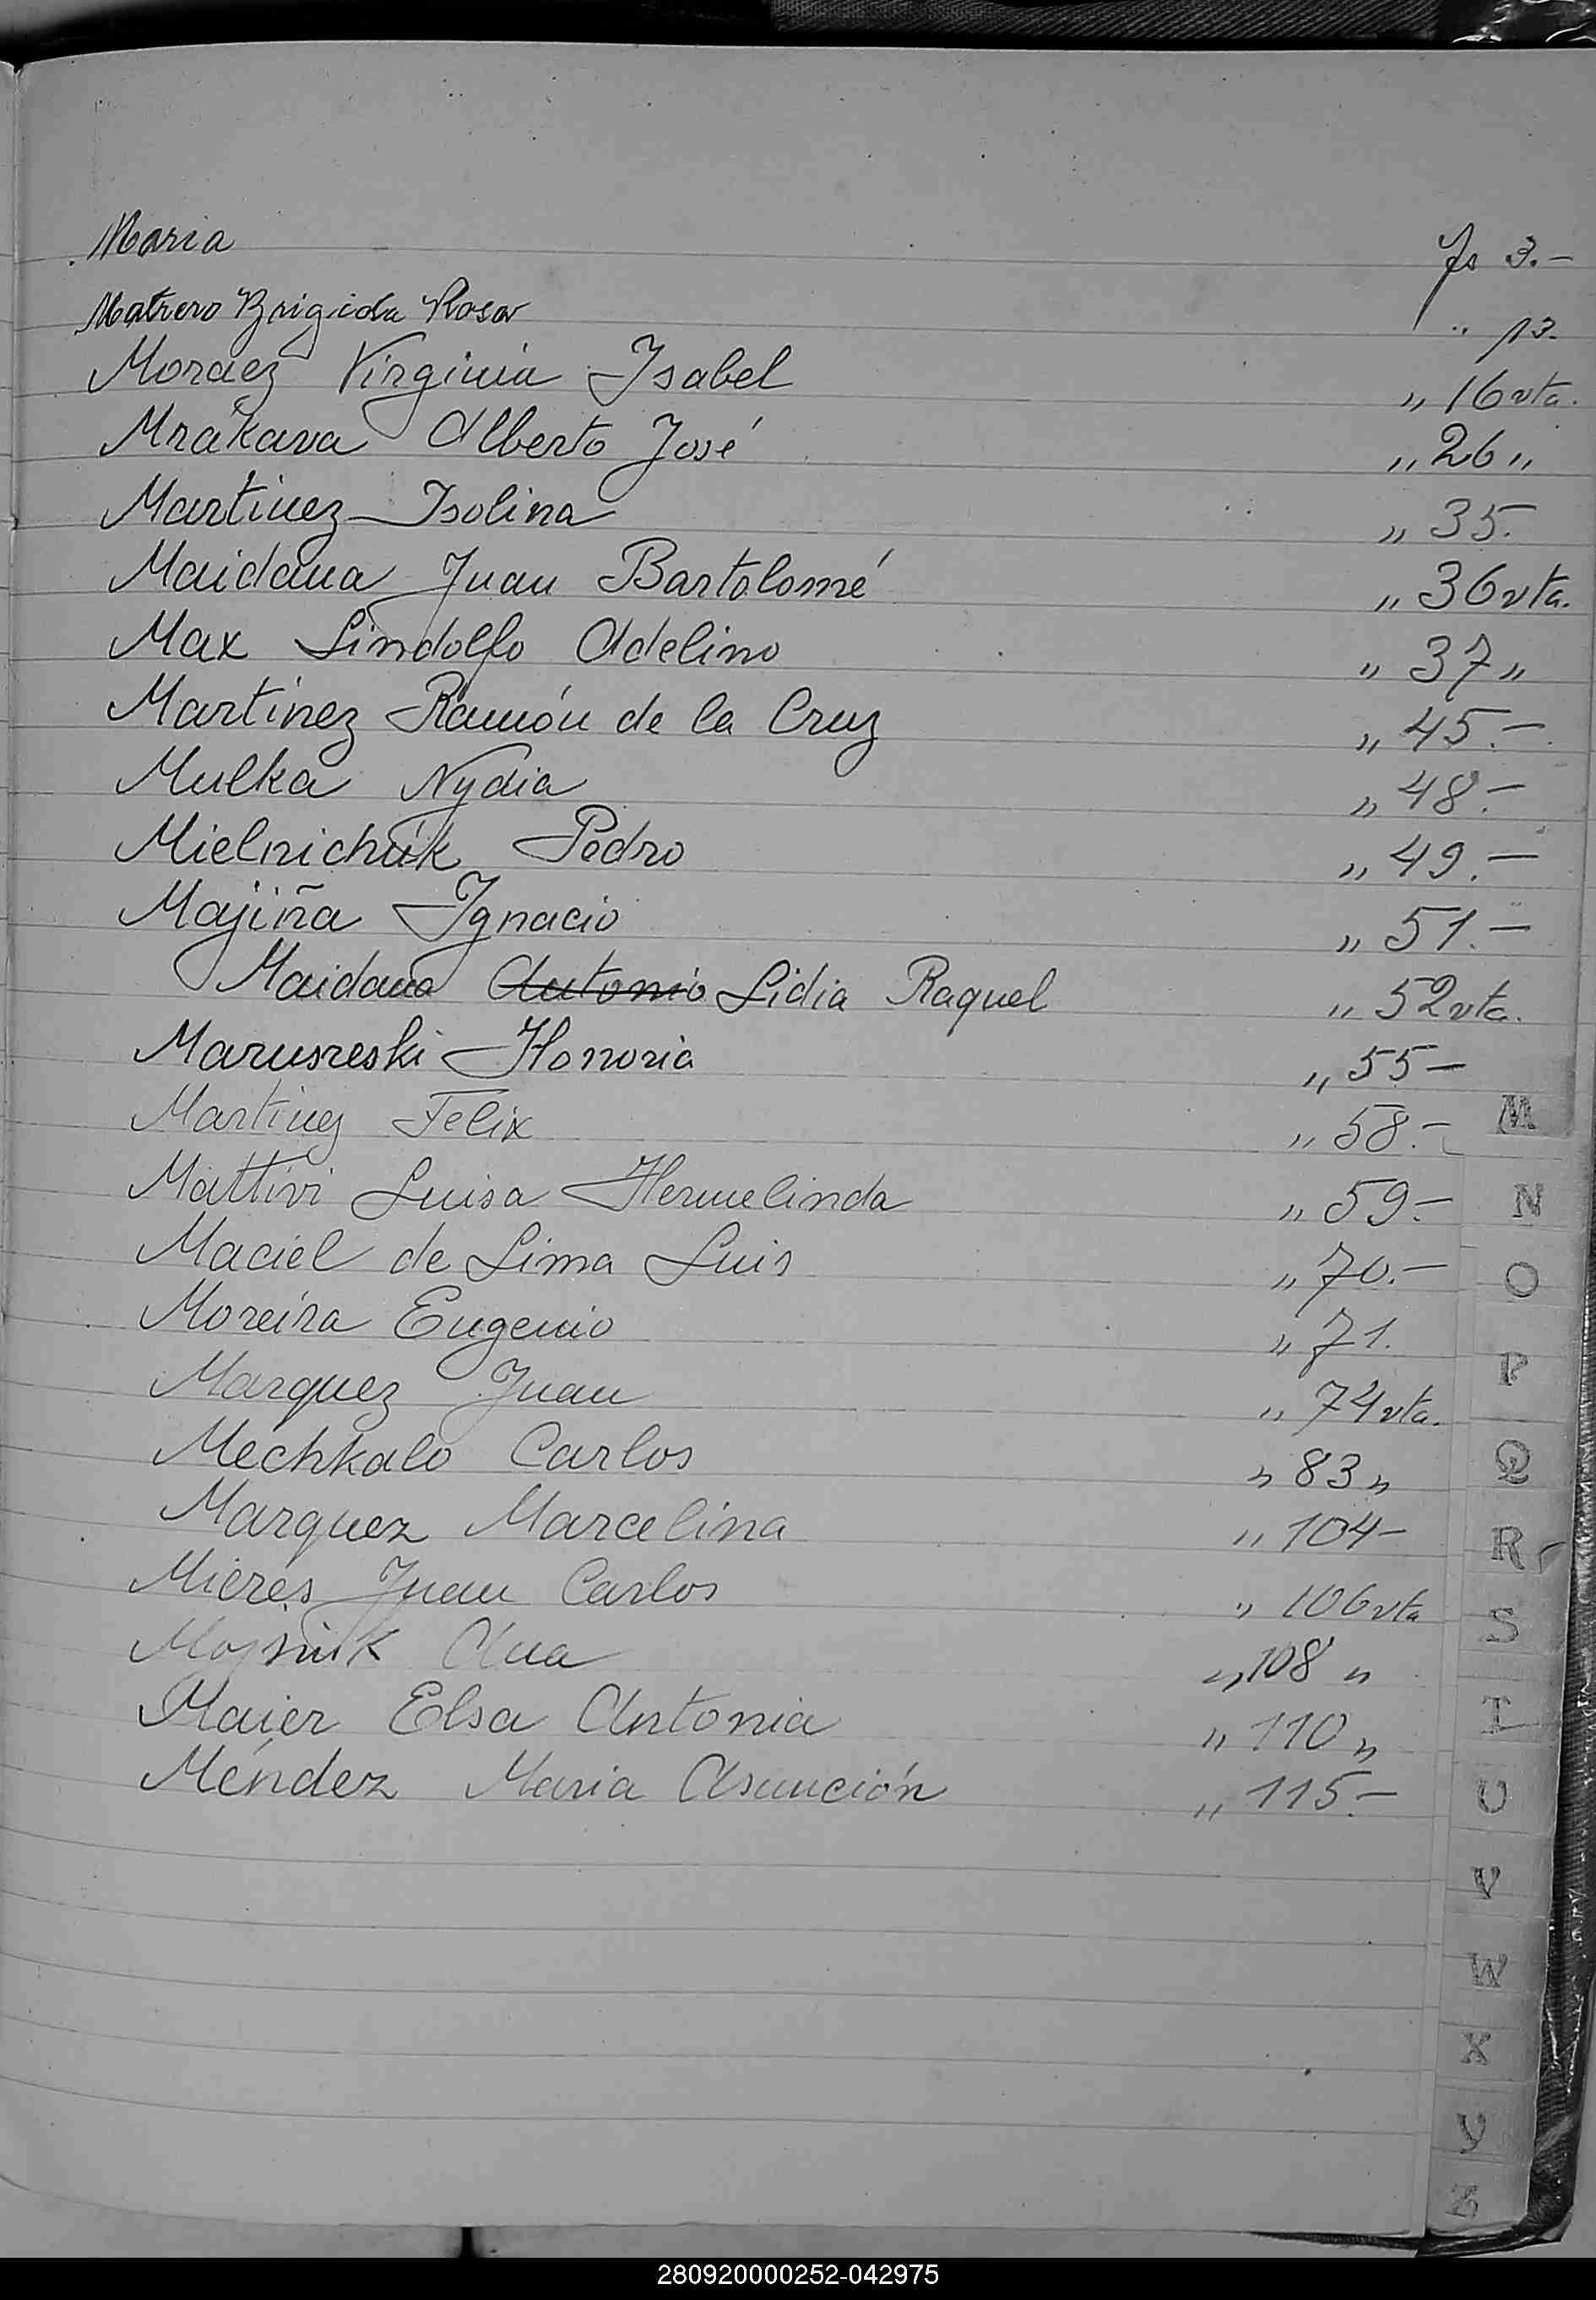 Maria fs 3.-
Matrero Brigida Rosa " 13.
Moraez Virginia Isabel " 16 vta.
Mrakava Alberto José " 26 "
Martinez Isolina " 35.
Maidana Juan Bartolomé " 36 vta.
Max Lindolfo Adelino " 37 "
Martinez Ramón de la Cruz " 45.-
Mulka Nydia " 48.-
Mielnichuk Pedro " 49.-
Majiña Ignacio " 51.-
Maidana Antonio Lidia Raquel " 52 vta.
Marusreski Honoria " 55-
Martinez Felix " 58.-
Mattivi Luisa Hermelinda " 59.-
Maciel de Lima Luis " 70.-
Moreira Eugenio " 71.
Marquez Juan " 74 vta.
Mechkalo Carlos " 83 "
Marquez Marcelina " 104-
Mieres Juan Carlos " 106 vta
Ana " 108 "
Maier Elsa Antonia " 110 "
Méndez Maria Asunción " 115.-
M
N
O
P
Q
R
S
T
U
V
W
X
Y
Z
280920000252-042975